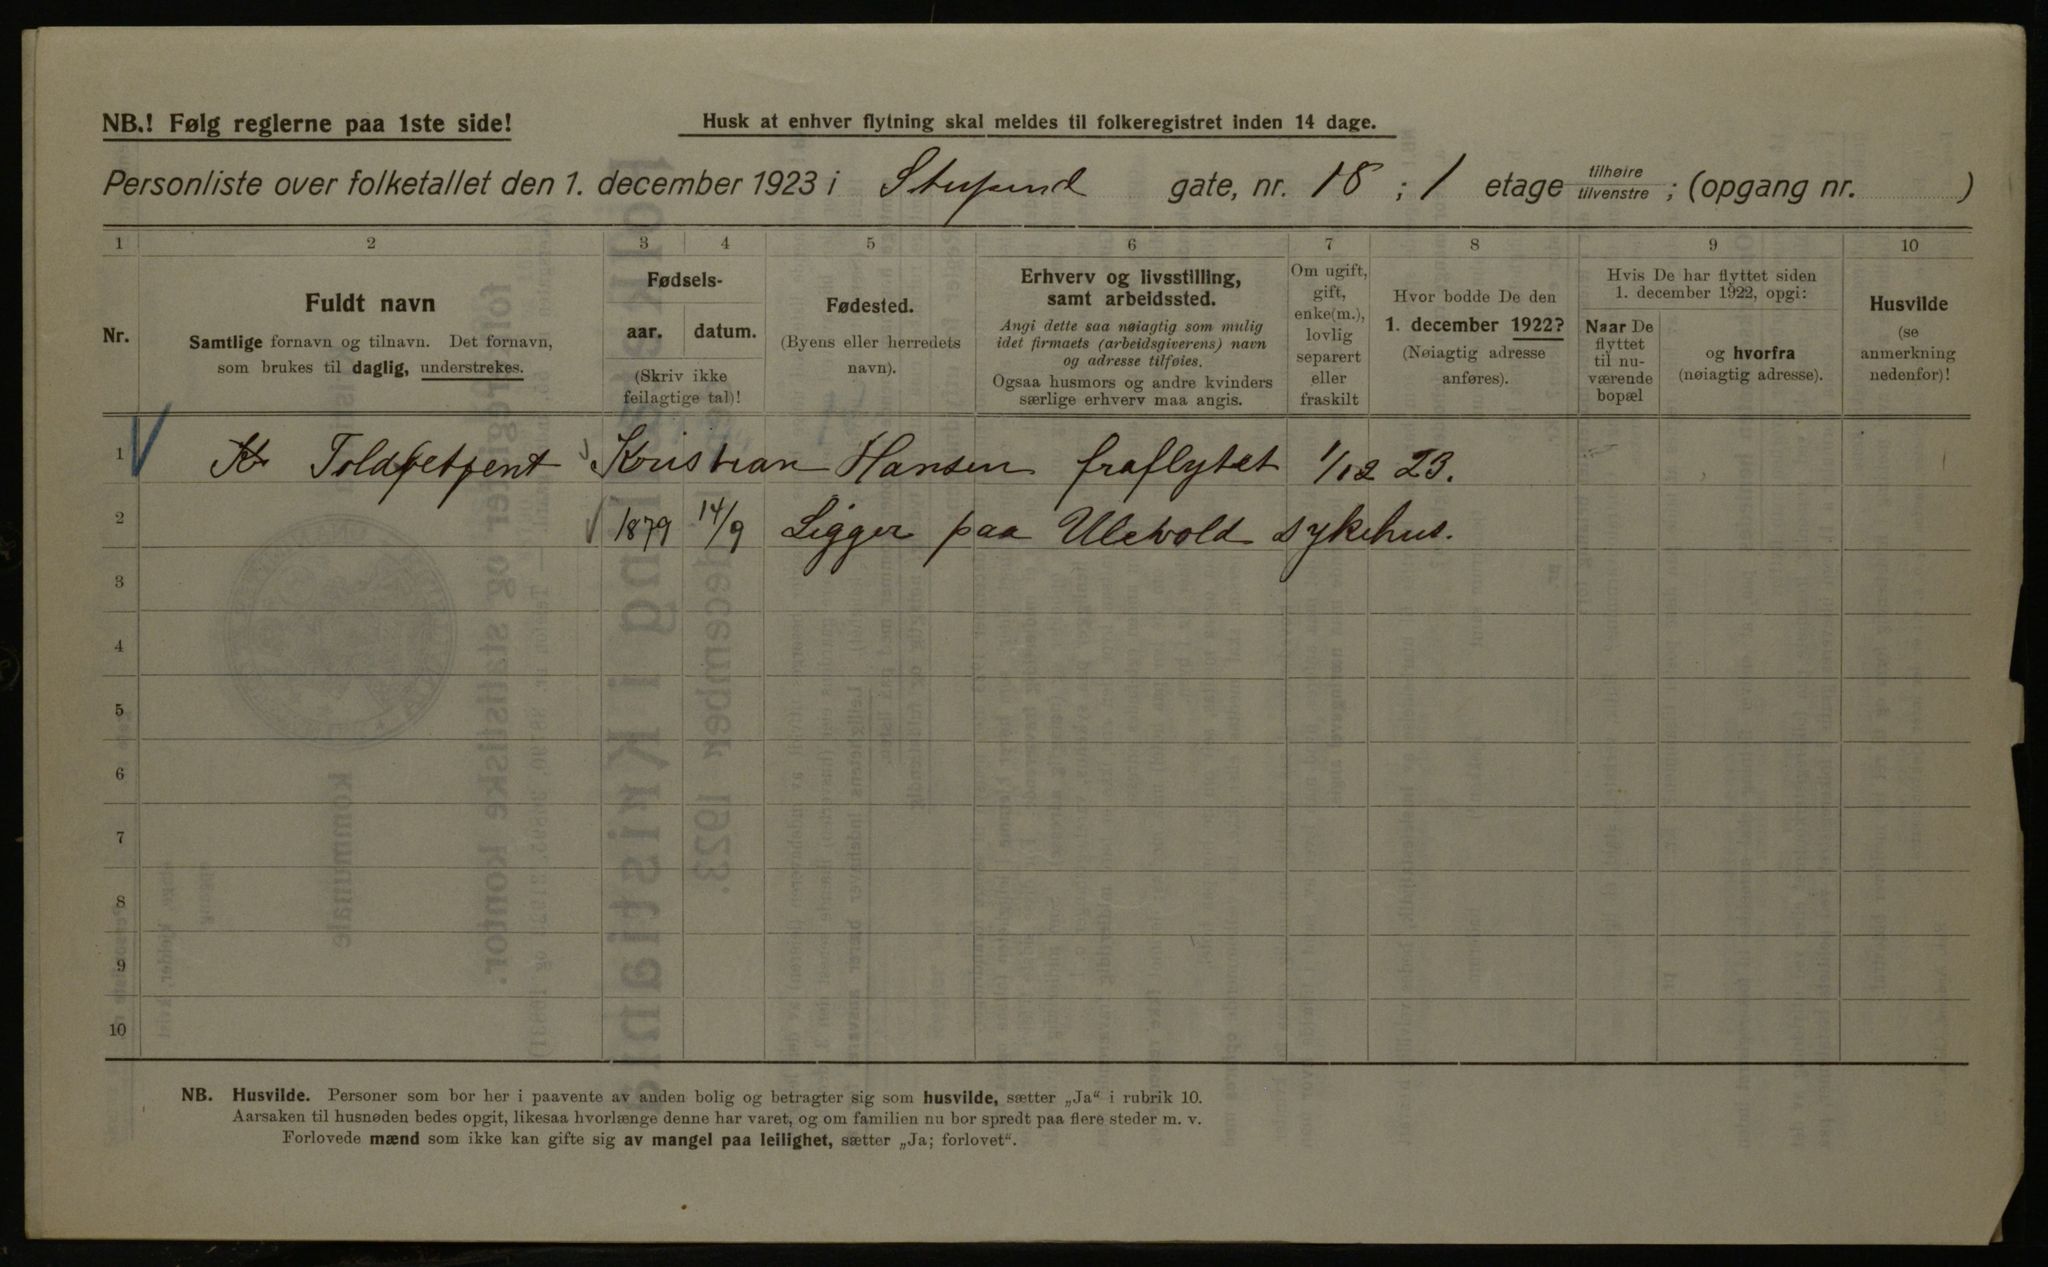 NB.! Følg reglerne paa 1ste side!
Husk at enhver flytning skal meldes til folkeregistret inden 14 dage.
Personliste over folketallet den 1. december 1923 i Stupind gate, nr. 18 ; 1 etage tilhøire tilvenstre ; (opgang nr. )
1 2 3 4 5 6 7 8 9 10
Nr.
Fuldt navn
Samtlige fornavn og tilnavn. Det fornavn,
som brukes til daglig, understrekes.
Fødsels-
aar. datum.
(Skriv ikke
feilagtige tal)!
Fødested.
(Byens eller herredets
navn).
Erhverv og livsstilling,
samt arbeidssted.
Angi dette saa nøiagtig som mulig
idet firmaets (arbeidsgiverens) navn
og adresse tilføies.
Ogsaa husmors og andre kvinders
særlige erhverv maa angis.
Om ugift,
gift,
enke(m.),
lovlig
separert
eller
fraskilt
Hvor bodde De den
1. december 1922?
(Nøiagtig adresse
anføres).
Hvis De har flyttet siden
1. december 1922, opgi:
Naar De
flyttet
til nu-
værende
bopæl
og hvorfra
(nøiagtig adresse).
Husvilde
(se
anmerkning
nedenfor)!
1 Toldbetjent Kristian Hansen fraflytet 1/12 23.
2 1879 14/9 Ligger paa Ulevold sykehus.
3
4
5
6
7
8
9
10
NB. Husvilde. Personer som bor her i paavente av anden bolig og betragter sig som husvilde, sætter „Ja“ i rubrik 10.
Aarsaken til husnøden bedes opgit, likesaa hvorlænge denne har varet, og om familien nu bor spredt paa flere steder m. v.
Forlovede mænd som ikke kan gifte sig av mangel paa leilighet, sætter „Ja; forlovet“.